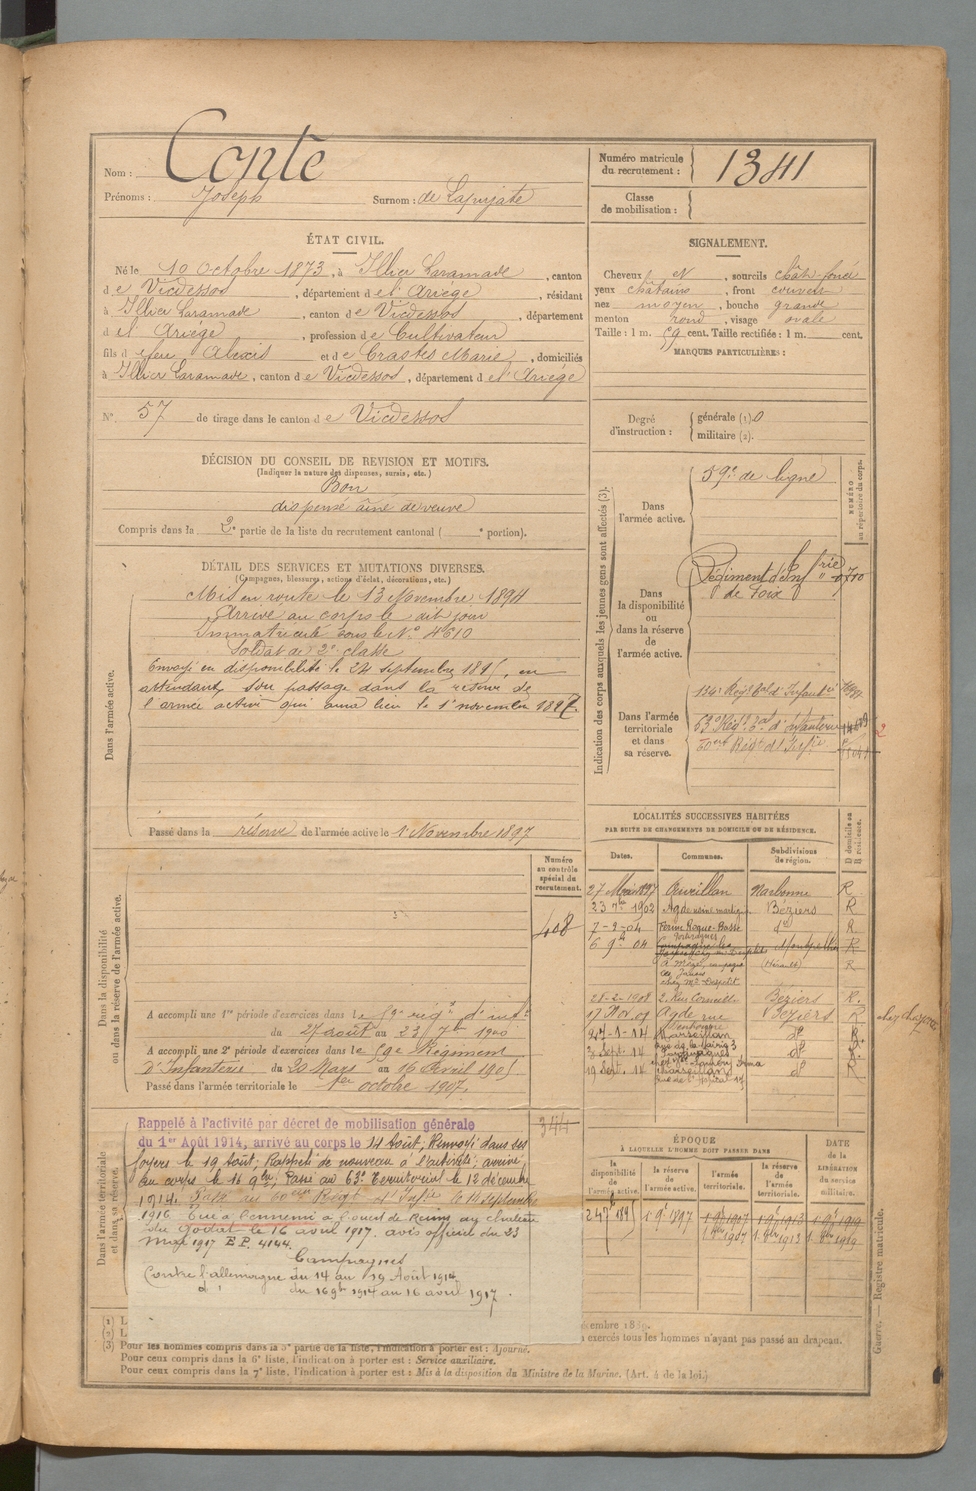 Nom : Conte
Prénoms : Joseph Surnom : de Lapujate
Numéro matricule du recrutement : 1341
Classe de mobilisation :
ÉTAT CIVIL.
Né le 10 Octobre 1873, à Illier Laramade, canton
de Vicdessos, département de l'Ariège, résidant
à Illier Laramade, canton de Vicdessos, département
de l'Ariège, profession de Cultivateur
fils de feu Alexis et de Crastes Marie, domiciliés
à Illier Laramade, canton de Vicdessos, département de l'Ariège
N° 57 de tirage dans le canton de Vicdessos
SIGNALEMENT.
Cheveux et , sourcils chât-foncé
yeux châtains, front couvert
nez moyen, bouche grande
menton rond, visage ovale
Taille : 1 m. 59 cent. Taille rectifiée : 1 m. cent.
MARQUES PARTICULIÈRES :
Degré d'instruction : générale (1) 0
militaire (2).
DÉCISION DU CONSEIL DE REVISION ET MOTIFS.
(Indiquer la nature des dispenses, sursis, etc.)
Bon
dispensé aîné de veuve
Compris dans la 2e partie de la liste du recrutement cantonal ( e portion).
DÉTAIL DES SERVICES ET MUTATIONS DIVERSES.
(Campagnes, blessures, actions d'éclat, décorations, etc.)
Dans l'armée active.
Mis en route le 13 Novembre 1894
Arrivé au corps le dit jour
Immatriculé sous le N° 4610
Soldat de 2e classe
Envoyé en disponibilité le 24 septembre 1895, en
attendant son passage dans la réserve de
l'armée active qui aura lieu le 1er novembre 1897.
Passé dans la réserve de l'armée active le 1 Novembre 1897
Indication des corps auxquels les jeunes gens sont affectés (3).
NUMÉRO au répertoire du corps.
Dans l'armée active.
59e de ligne
Dans la disponibilité ou dans la réserve de l'armée active.
Régiment d'Infrie
de Foix
Dans l'armée territoriale et dans sa réserve.
134e Régt Tal d'Infanterie
63e Régt Tal d'infanterie
60eme Régt d'Infrie
LOCALITÉS SUCCESSIVES HABITÉES
PAR SUITE DE CHANGEMENTS DE DOMICILE OU DE RÉSIDENCE.
Dates. Communes. Subdivisions de région. D domicile ou R résidence.
27 Mars 1897 Cuveillan Narbonne R.
23 7bre 1902 Agde Béziers R
7-2-04 Ferme Roque-Basse do R
6 9b 04 Montpellier R
à Mèze, campagne (Hérault) R
28-2-1908 2, Rue Corneille Béziers R.
17 Nov. 09 Agde rue Béziers R
27-1-14 Marseillan do R.
2 Sept. 14 do R.
19 Sept. 14 Marseillan do R
Dans la disponibilité ou dans la réserve de l'armée active.
Numéro au contrôle spécial du recrutement.
408
A accompli une 1re période d'exercices dans le 59e régt d'inf
du 27 août au 23 7bre 1900
A accompli une 2e période d'exercices dans le 59e Régiment
d'Infanterie du 20 Mars au 16 Avril 1905
Passé dans l'armée territoriale le 1er octobre 1907.
Dans l'armée territoriale et dans sa réserve.
344
Rappelé à l'activité par décret de mobilisation générale
du 1er Août 1914, arrivé au corps le 14 Août, Renvoyé dans ses
foyers le 19 Août; Rappelé de nouveau à l'activité; arrivé
au corps le 16 9bre; Passé au 63e Territorial le 12 décembre
1914. Passé au 60eme Régt d'Infie le 14 septembre
1916. Tué à l'ennemi à l'ouest de Reims, au
du Godat le 16 avril 1917. avis officiel du 23
mai 1917 E P. 4144.
Campagnes
Contre l'allemagne du 14 au 19 Août 1914
do du 16 9bre 1914 au 16 avril 1917.
ÉPOQUE
À LAQUELLE L'HOMME DOIT PASSER DANS
la disponibilité de l'armée active. la réserve de l'armée active. l'armée territoriale. la réserve de l'armée territoriale. DATE de la LIBÉRATION du service militaire.
24 7b 1895 1 9b 1897 1 9b 1907 1 9b 1913 1 9b 1919
1 8br 1907 1 8br 1913 1 8br 1919
(1) L
(2) L
exercés tous les hommes n'ayant pas passé au drapeau.
(3) Pour les hommes compris dans la 3e partie de la liste, l'indication à porter est : Ajourné.
Pour ceux compris dans la 6e liste, l'indication à porter est : Service auxiliaire.
Pour ceux compris dans la 7e liste, l'indication à porter est : Mis à la disposition du Ministre de la Marine. (Art. 4 de la loi.)
Guerre. — Registre matricule.